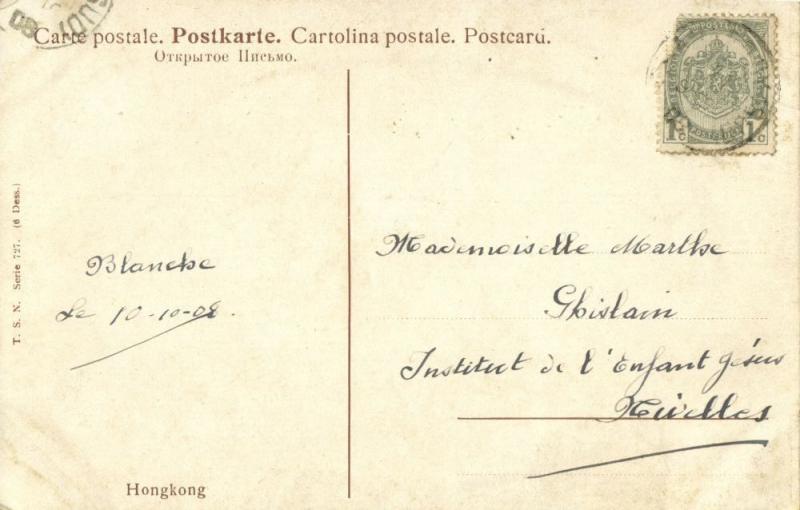 Carte postale. Postkarte. Cartolina postale. Postcard.
Открытое Письмо.
1c POSTES 1c
T. S. N. Serie 727. (6 Dess.)
Blanche
Le 10-10-08.
Mademoiselle Marthe
Ghislain
Institut de l'Enfant Jésus
Nivelles
Hongkong